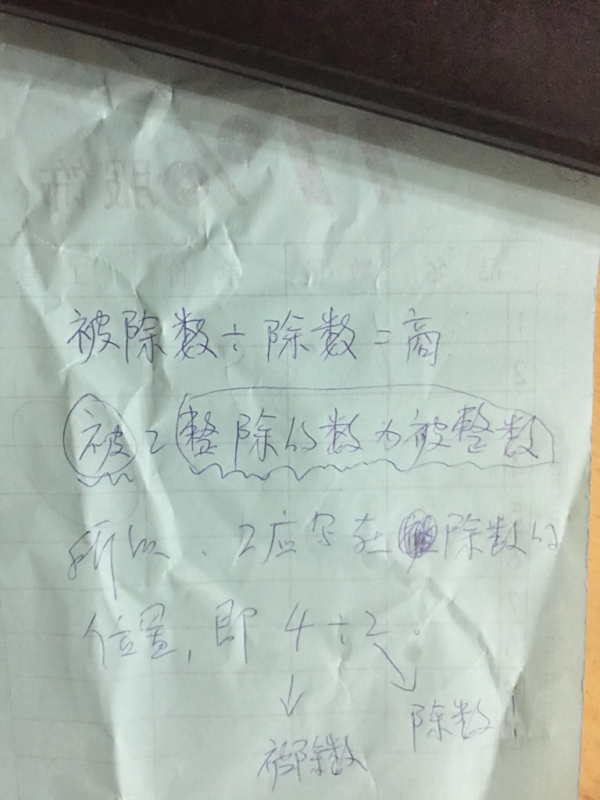 17%服饰
被除数÷除数=商
被2整除的数为被整数
所以、2应写在除数的
位置,即4÷2.
除数!
被除数